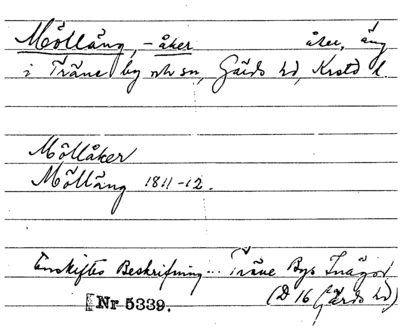 Mölläng, -åker åker, äng
i Träne by och sn, Gärds hd, Krstd l.
Möllåker
Mölläng 1811-12.
Enskiftes Beskrifning... Träne Bys Inägor
(D 16 Gärds hd)
Nr 5339.